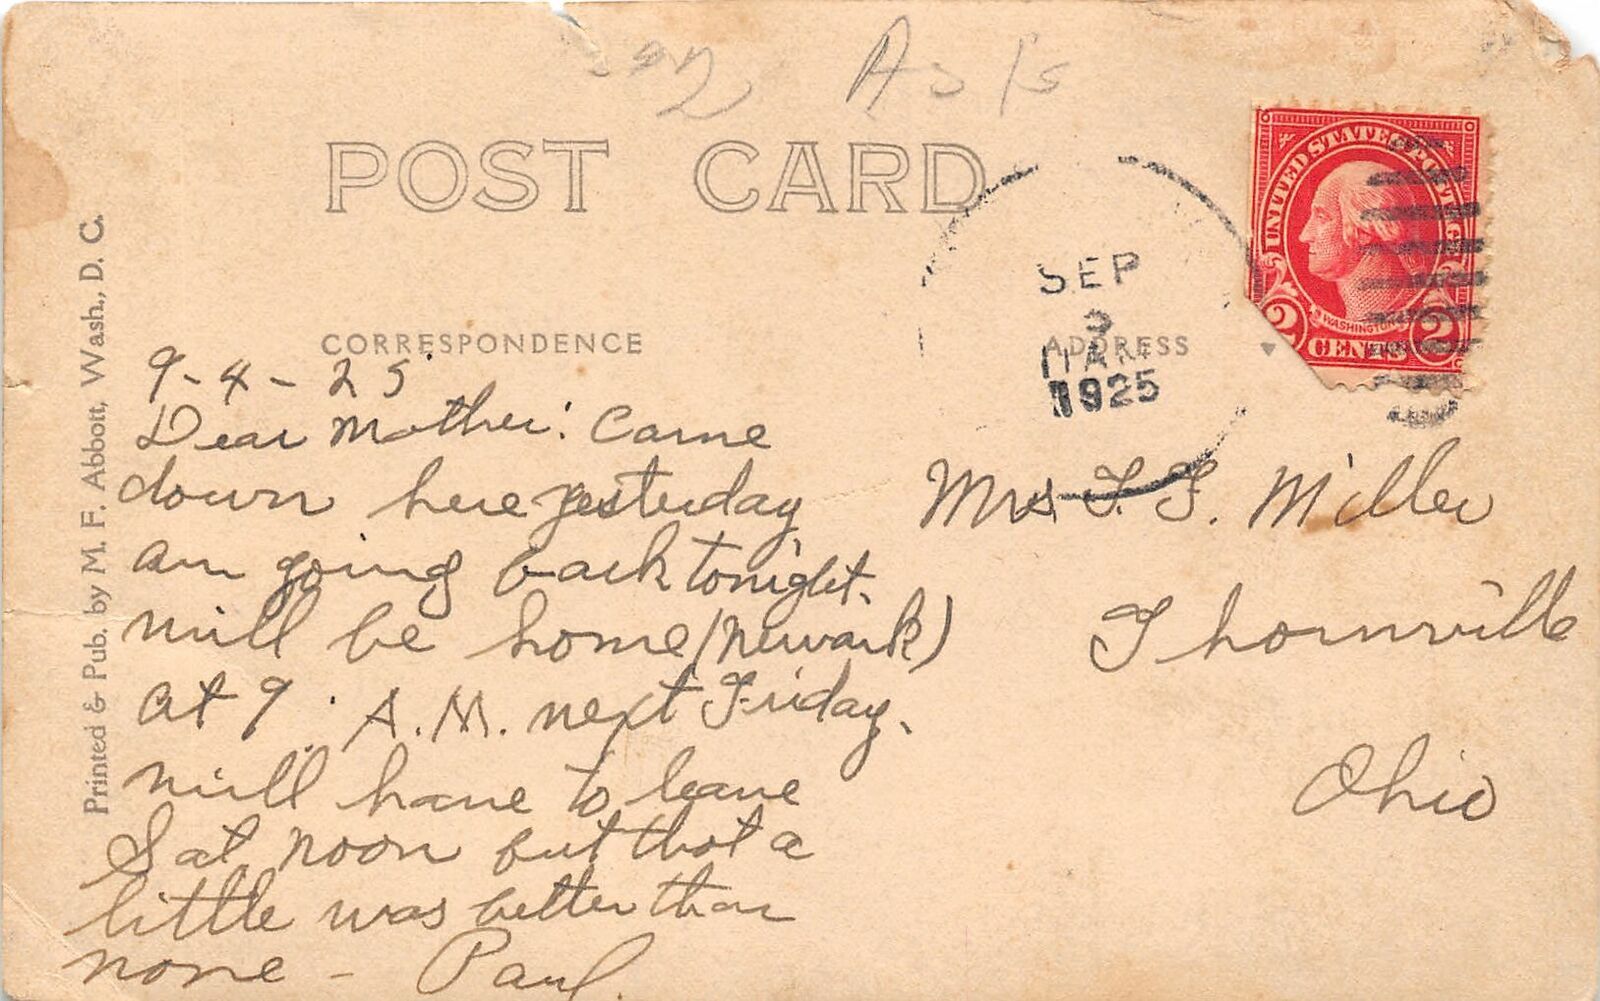 As Is
POST CARD
UNITED STATES POSTAGE
WASHINGTON
2 CENTS 2
SEP
11 AM
1925
CORRESPONDENCE
ADDRESS
Printed & Pub. by M. F. Abbott, Wash., D. C.
9-4-25
Dear Mother: Came
down here yesterday
am going back tonight.
will be home (Newark)
at 9 A.M. next Friday.
will have to leave
Sat. noon but thot a
little was better than
none - Paul.
Mrs Miller
Thornville
Ohio